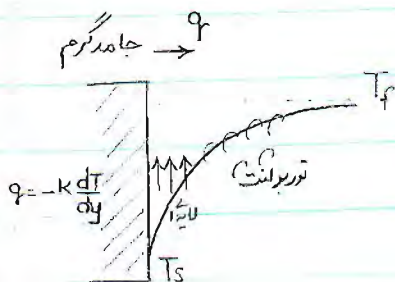 جامدگرم → q
T_f
توربولنت
q = -K dT/dy
T_s